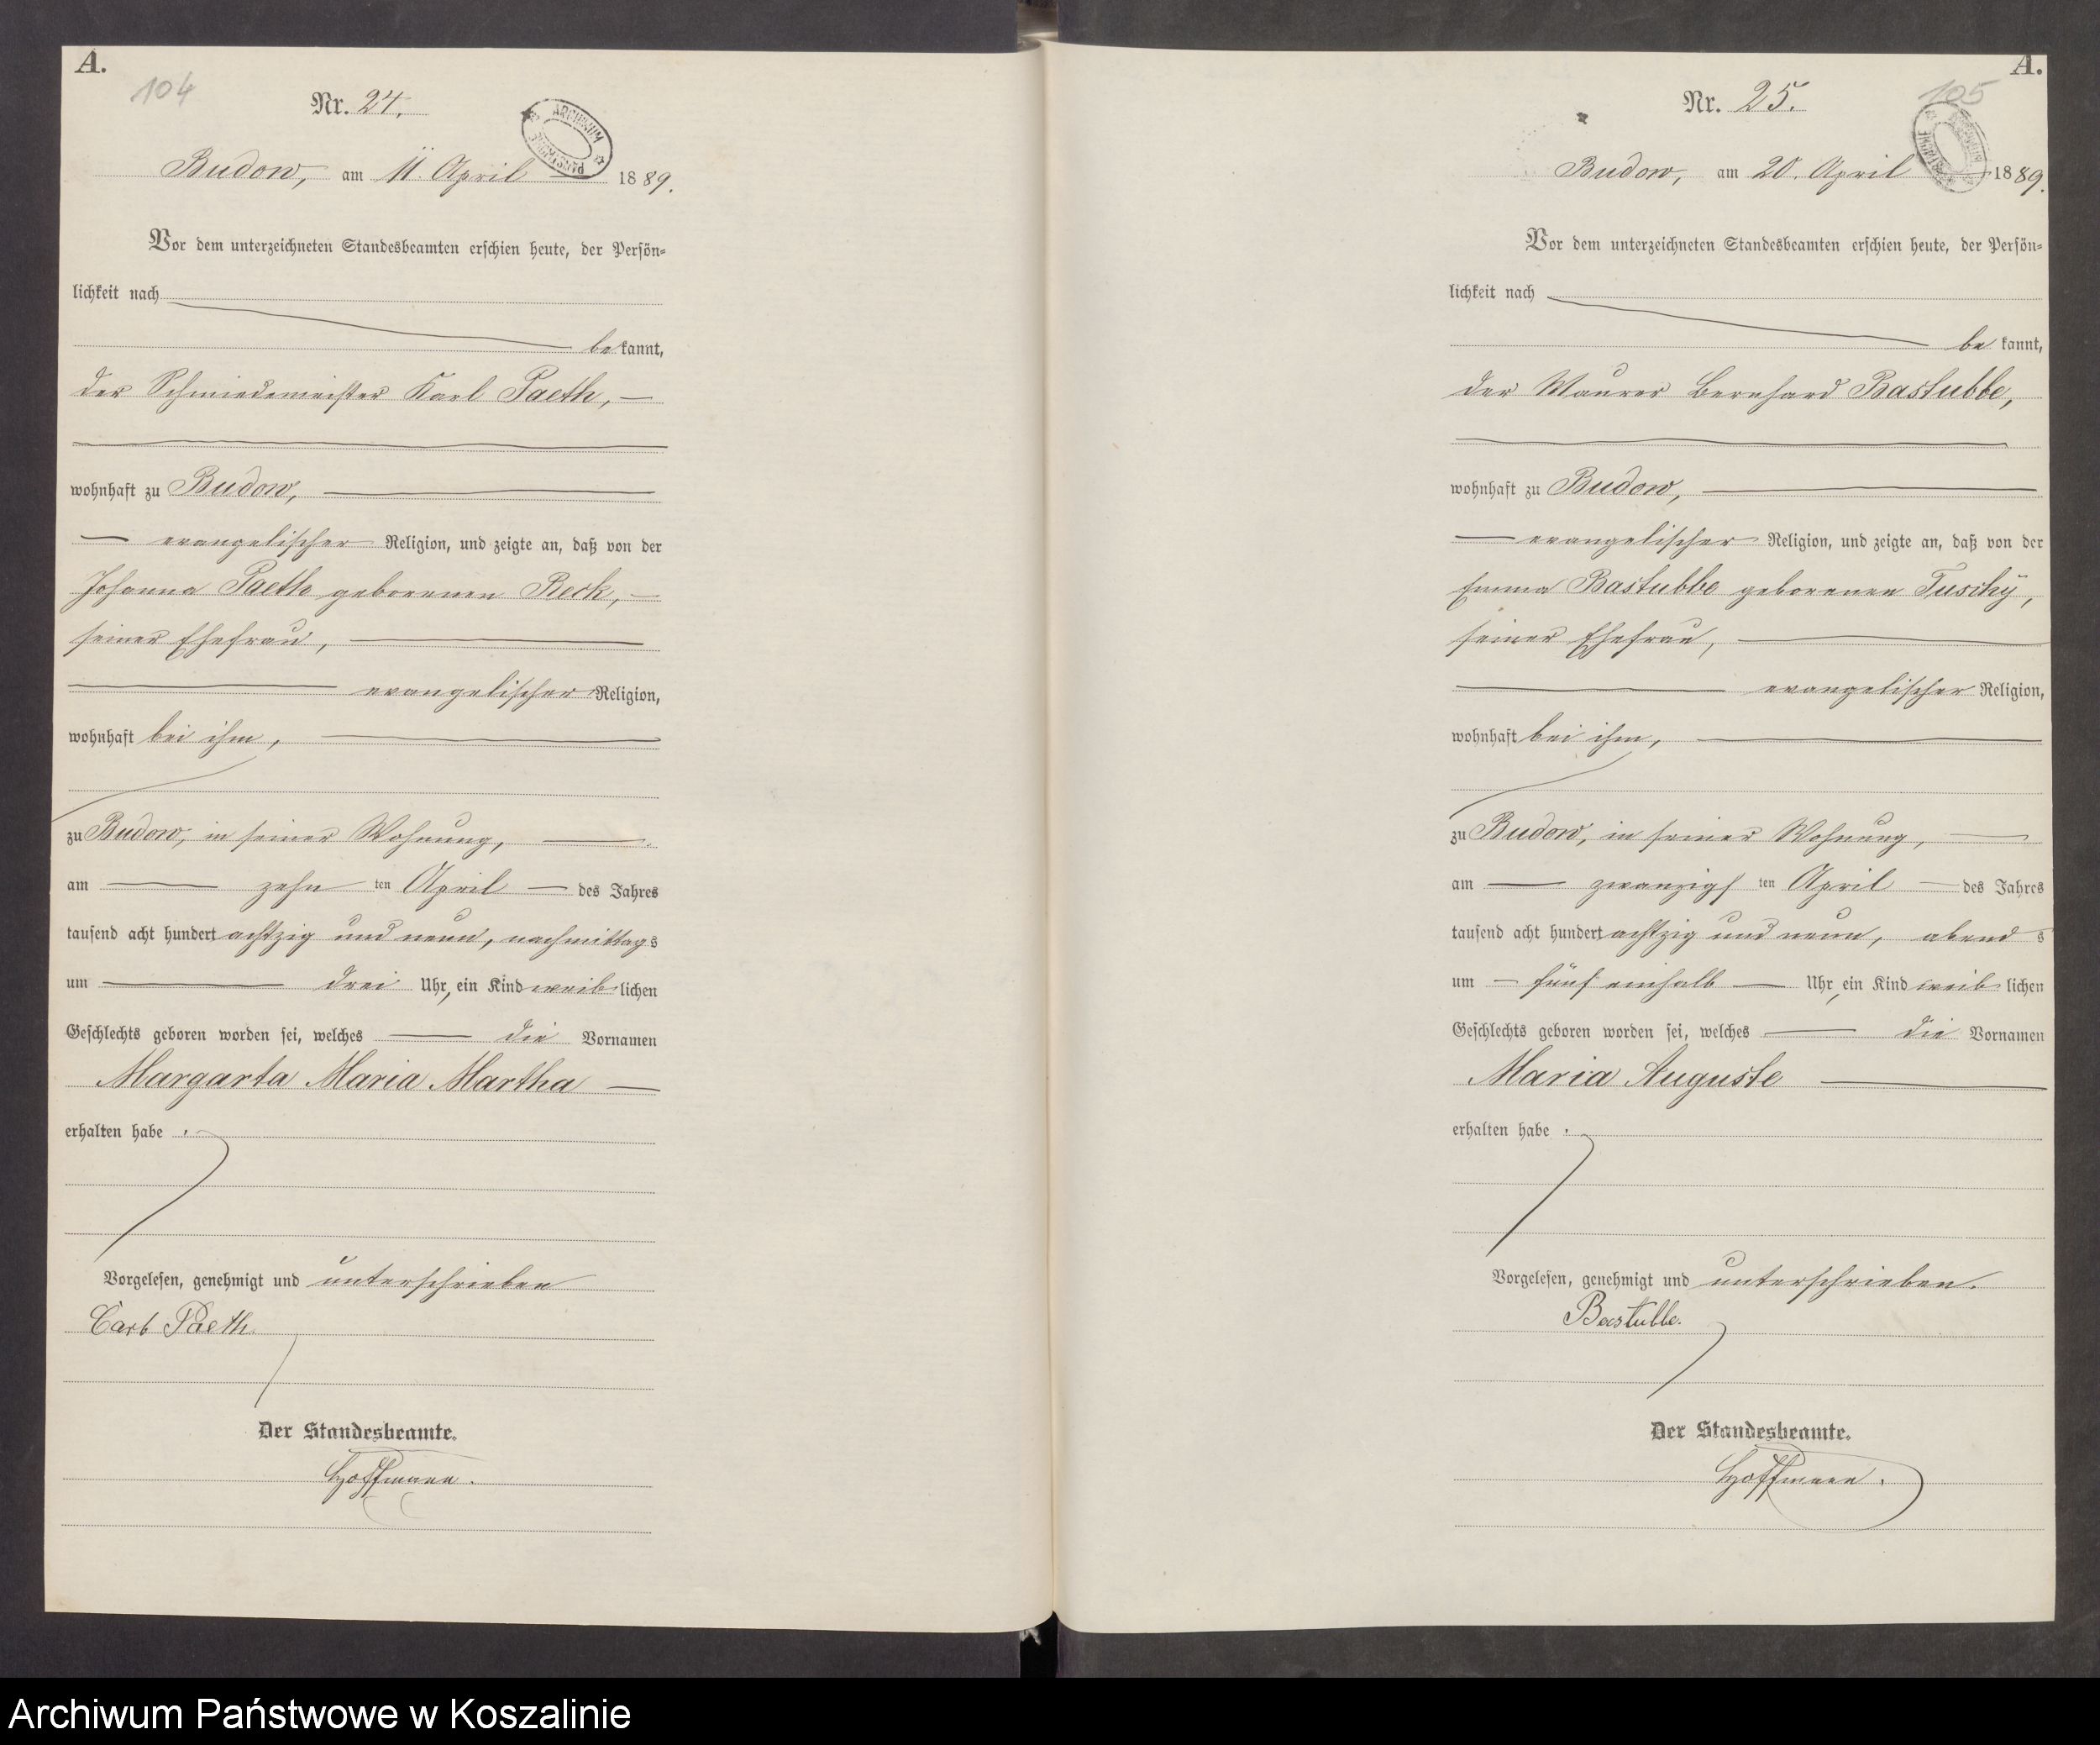 A.
104
Nr. 24.
ARCHIWUM
Budow, am 11. April 1889.
Vor dem unterzeichneten Standesbeamten erschien heute, der Persön-
lichkeit nach
be kannt,
der Schmiedemeister Karl Paeth,
wohnhaft zu Budow,
evangelischer Religion, und zeigte an, daß von der
Johanna Paeth geborenen Reck,
seiner Ehefrau,
evangelischer Religion,
wohnhaft bei ihm,
zu Budow, in seiner Wohnung,
am zehn ten April des Jahres
tausend acht hundert achtzig und neun, nachmittags
um drei Uhr, ein Kind weib lichen
Geschlechts geboren worden sei, welches die Vornamen
Margarta Maria Martha
erhalten habe.
Vorgelesen, genehmigt und unterschrieben
Carl Paeth.
Der Standesbeamte.
Hoffmann.
A.
105
Nr. 25.
Budow, am 20. April 1889.
Vor dem unterzeichneten Standesbeamten erschien heute, der Persön-
lichkeit nach
be kannt,
der Maurer Bernhard Bastubbe,
wohnhaft zu Budow,
evangelischer Religion, und zeigte an, daß von der
Emma Bastubbe geborenen Tuschÿ,
seiner Ehefrau,
evangelischer Religion,
wohnhaft bei ihm,
zu Budow, in seiner Wohnung,
am zwanzigs ten April des Jahres
tausend acht hundert achtzig und neun, abend s
um fünf einhalb Uhr, ein Kind weib lichen
Geschlechts geboren worden sei, welches die Vornamen
Maria Auguste
erhalten habe.
Vorgelesen, genehmigt und unterschrieben.
Bastubbe.
Der Standesbeamte.
Hoffmann.
Archiwum Państwowe w Koszalinie